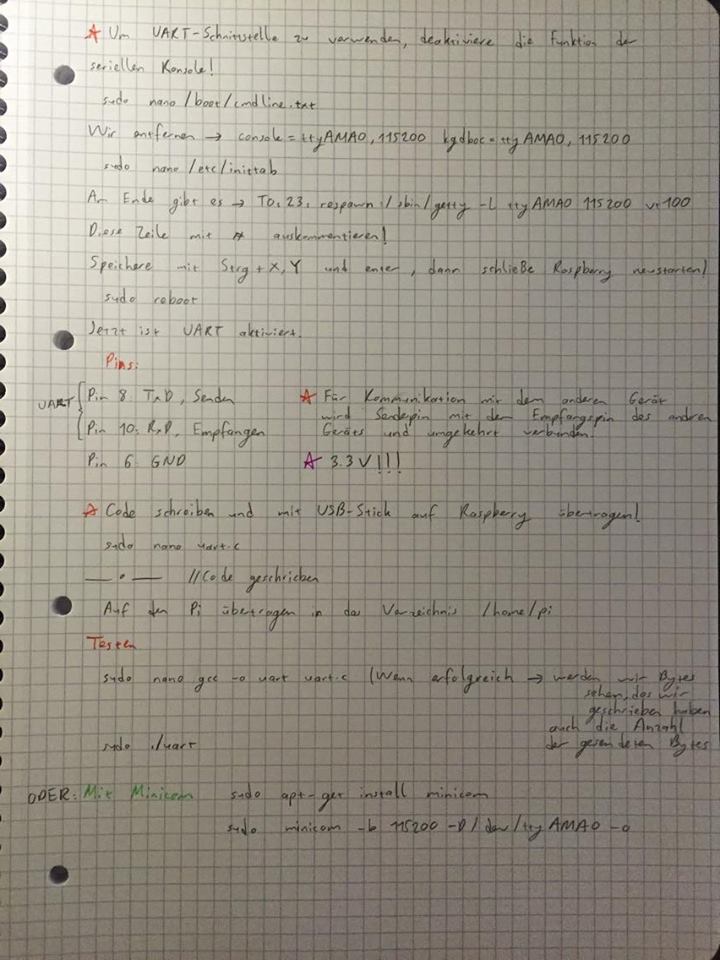 * Um UART-Schnittstelle zu verwenden, deaktiviere die Funktion der
seriellen Konsole!
sudo nano /boot/cmdline.txt
Wir entfernen → console=ttyAMA0,115200 kgdboc=ttyAMA0,115200
sudo nano /etc/inittab
Am Ende gibt es → T0:23:respawn:/sbin/getty -L ttyAMA0 115200 vt100
Diese Zeile mit # auskommentieren!
Speichere mit Strg+X,Y und enter, dann schließe Raspberry neustarten!
sudo reboot
Jetzt ist UART aktiviert.
Pins:
UART { Pin 8: TxD, Senden
Pin 10: RxD, Empfangen
Pin 6: GND
* Für Kommunikation mit dem anderen Gerät
wird Senderpin mit dem Empfangspin des andren
Geräts und umgekehrt verbinden.
* 3.3V!!!
* Code schreiben und mit USB-Stick auf Raspberry übertragen!
sudo nano uart.c
—— • —— //Code geschrieben
Auf den Pi übertragen in das Verzeichnis /home/pi
Testen
sudo nano gcc -o uart uart.c (Wenn erfolgreich → werden wir Bytes
sehen, das wir
geschrieben haben
auch die Anzahl
der gesendeten Bytes
sudo ./uart
ODER: Mit Minicom sudo apt-get install minicom
sudo minicom -b 115200 -D/dev/ttyAMA0 -o